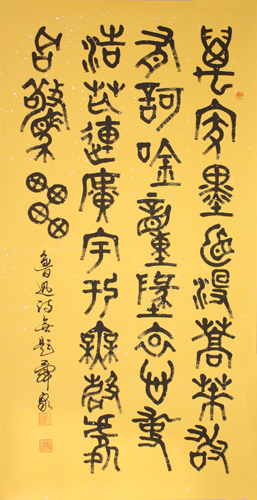 萬家墨面没蒿莱敢
有訶吟動地哀心事
浩茫連廣宇於無聲處
聽驚雷
魯迅詩無題